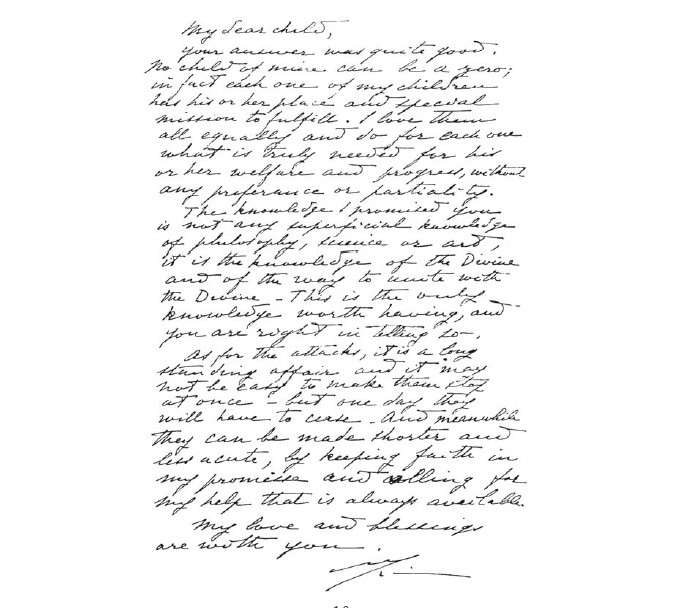 My dear child,
your answer was quite good.
No child of mine can be a zero;
in fact each one of my children
has his or her place and special
mission to fulfill. I love them
all equally and do for each one
what is truly needed for his
or her welfare and progress, without
any preferance or partiality.
The knowledge I promised you
is not any superficial knowledge
of philosophy, science or art,
it is the knowledge of the Divine
and of the way to unite with
the Divine - This is the only
knowledge worth having, and
you are right in telling so -.
As for the attacks, it is a long
standing affair and it may
not be easy to make them stop
at once - but one day they
will have to cease - And meanwhile
they can be made shorter and
less acute, by keeping faith in
my promise and calling for
my help that is always available.
My love and blessings
are with you.